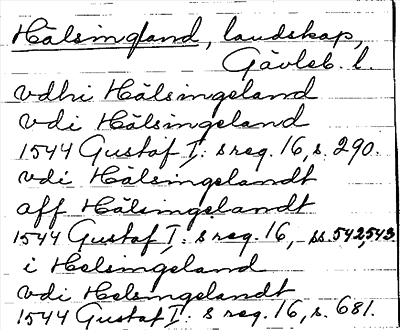 Hälsingland, landskap,
Gävleb. l.
vdhi Hälsingeland
vdi Hälsingeland
1544 Gustaf I:s reg. 16, s. 290.
vdi Hälsingelandt
aff Hälsingelandt
1544 Gustaf I:s reg. 16, ss. 542, 543
i Helsingeland
vdi Helsingelandt
1544 Gustaf I:s reg. 16, s. 681.